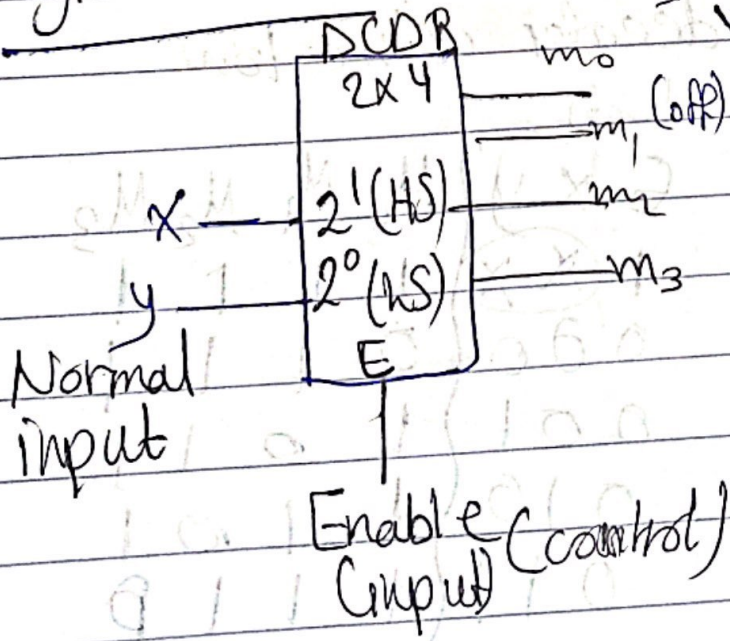 DCDR
2x4
m₀
m₁ (off)
X
2¹ (HS)
m₂
y
2⁰ (LS)
m₃
E
Normal
input
Enable (control)
(input)